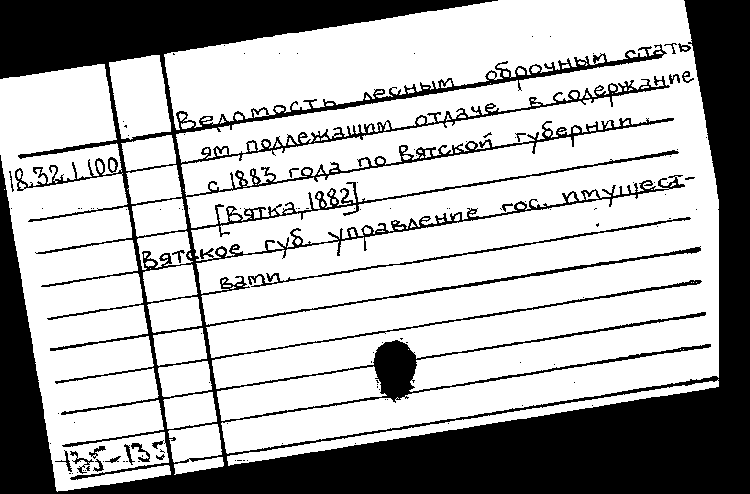 Ведомость лесным оброчным стать-
ям, подлежащим отдаче в содержание
18.32.1.100.
с 1883 года по Вятской губернии.
[Вятка, 1882].
Вятское губ. управление гос. имущест-
вами.
135-135